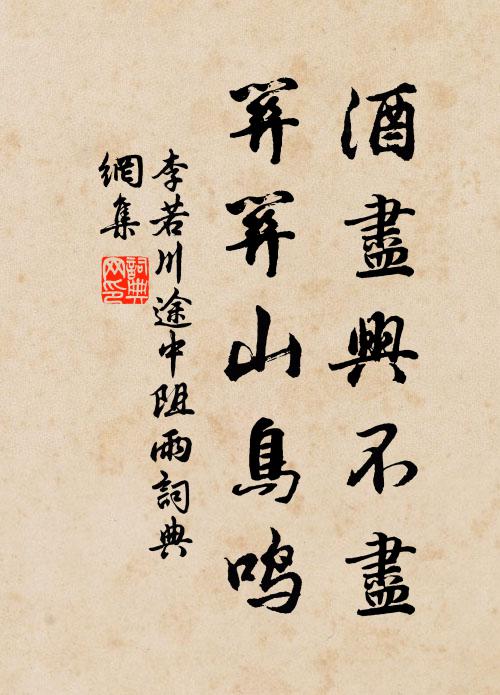 酒盡興不盡
關關山鳥鳴
李若川途中阻雨詞典
網集
詞典
网印